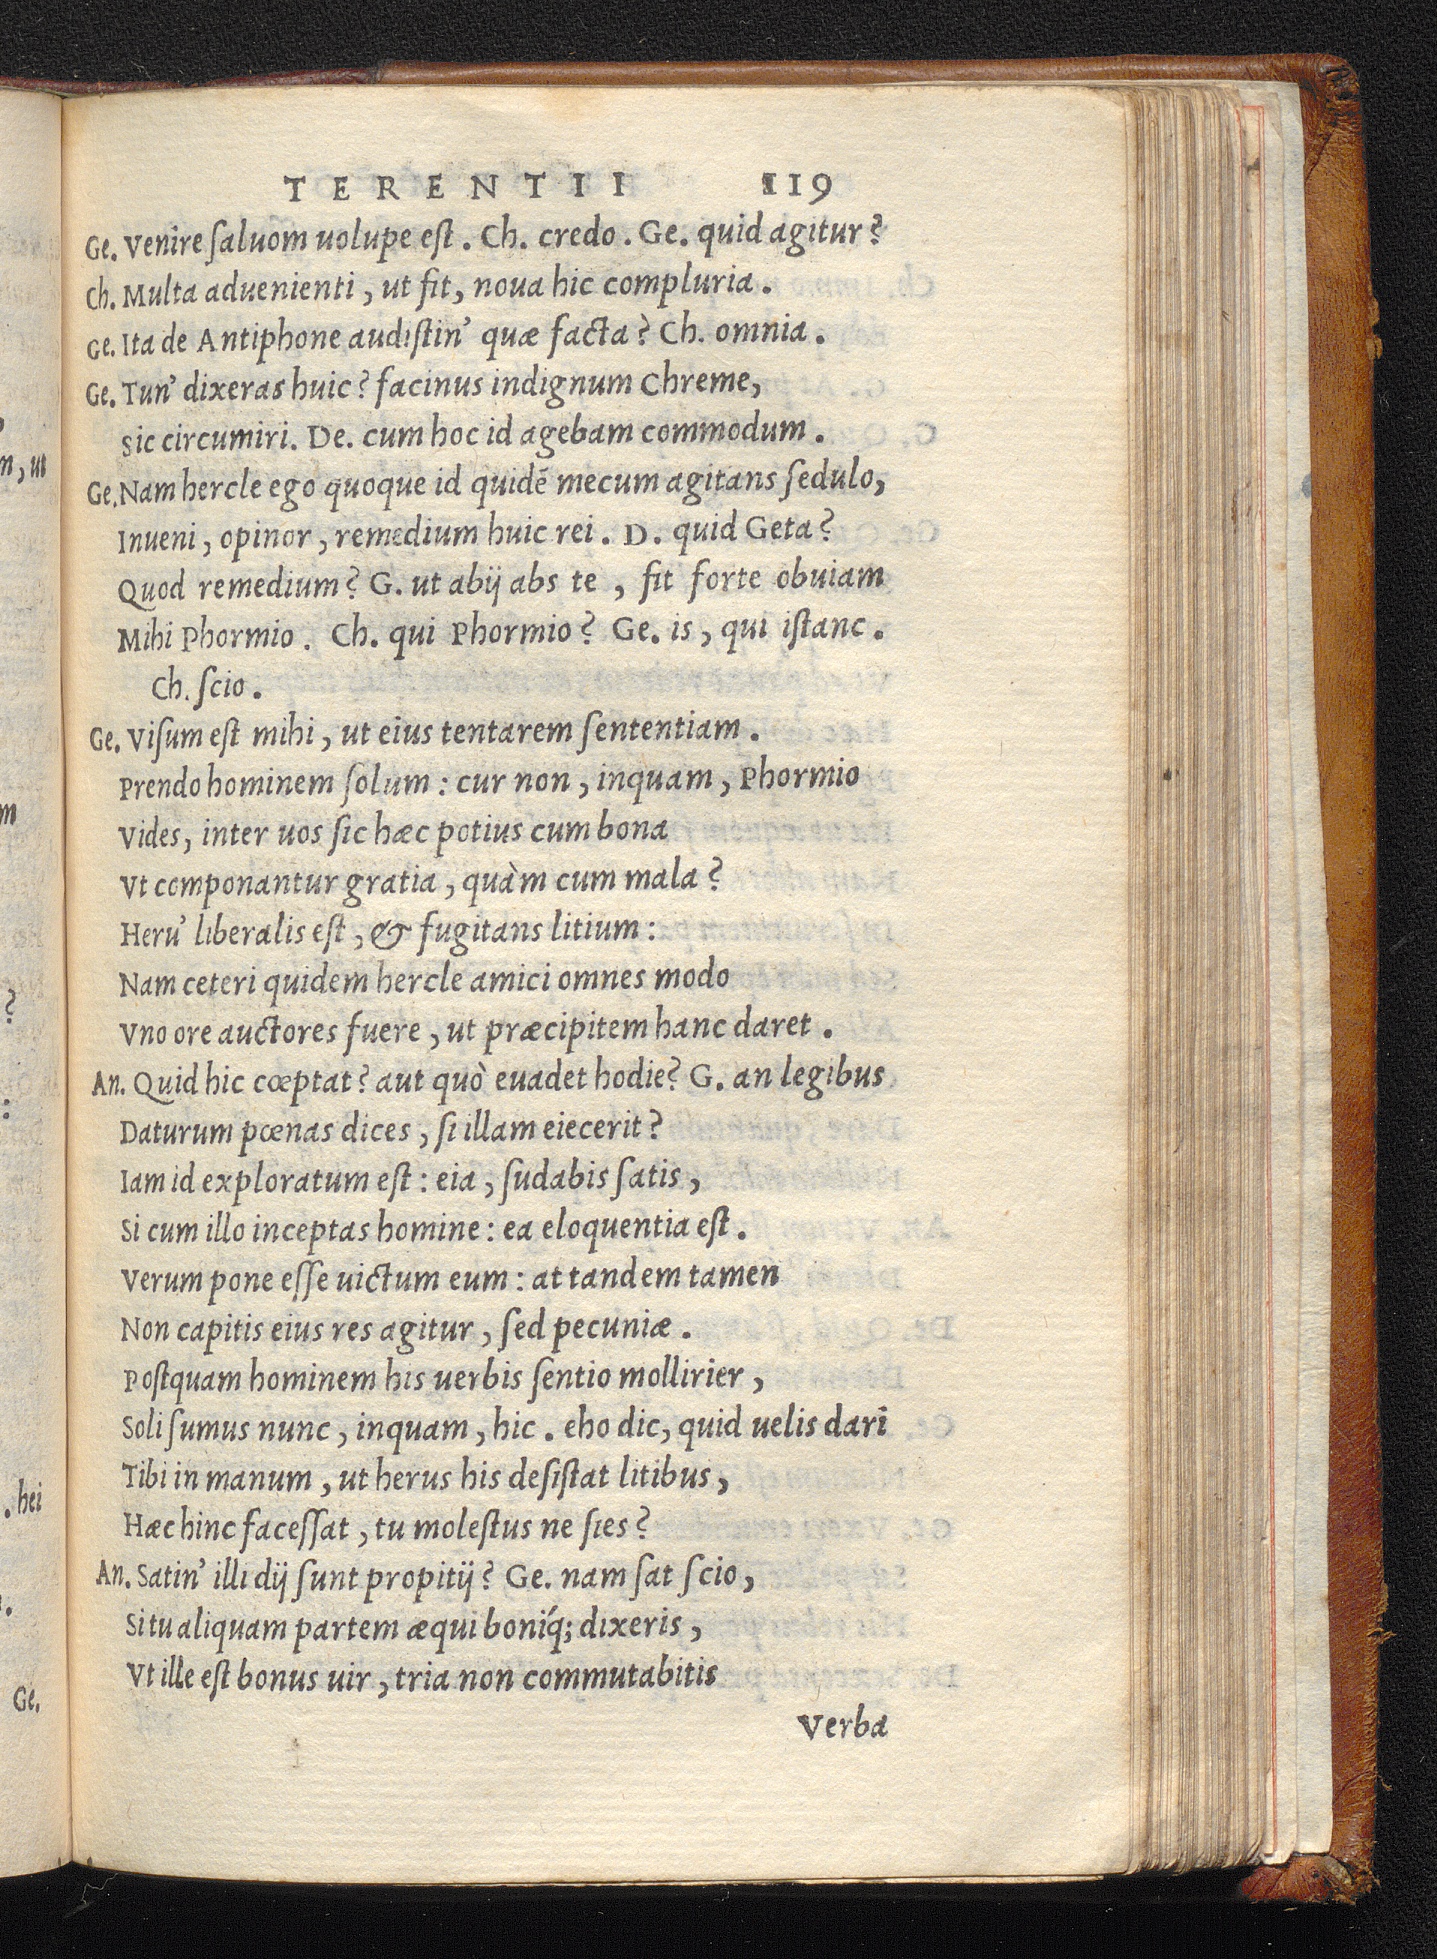 TERENTII 119
Ge. Venire saluom uolupe est. Ch. credo. Ge. quid agitur?
Ch. Multa aduenienti, ut fit, noua hic compluria.
Ge. Ita de Antiphone audistin' quæ facta? Ch. omnia.
Ge. Tun' dixeras huic? facinus indignum Chreme,
Sic circumiri. De. cum hoc id agebam commodum.
Ge. Nam hercle ego quoque id quidē mecum agitans sedulo,
Inueni, opinor, remedium huic rei. D. quid Geta?
Quod remedium? G. ut abij abs te, fit forte obuiam
Mihi Phormio. Ch. qui Phormio? Ge. is, qui istanc.
Ch. scio.
Ge. Visum est mihi, ut eius tentarem sententiam.
Prendo hominem solum: cur non, inquam, Phormio
Vides, inter uos sic hæc potius cum bona
Vt componantur gratia, quàm cum mala?
Heru' liberalis est, & fugitans litium:
Nam ceteri quidem hercle amici omnes modo
Vno ore auctores fuere, ut præcipitem hanc daret.
An. Quid hic cœptat? aut quò euadet hodie? G. an legibus
Daturum pœnas dices, si illam eiecerit?
Iam id exploratum est: eia, sudabis satis,
Si cum illo inceptas homine: ea eloquentia est.
Verum pone esse uictum eum: at tandem tamen
Non capitis eius res agitur, sed pecuniæ.
Postquam hominem his uerbis sentio mollirier,
Soli sumus nunc, inquam, hic. eho dic, quid uelis dari
Tibi in manum, ut herus his desistat litibus,
Hæc hinc facessat, tu molestus ne sies?
An. Satin' illi dij sunt propitij? Ge. nam sat scio,
Si tu aliquam partem æqui boníq; dixeris,
Vt ille est bonus uir, tria non commutabitis
Verba
m, ut
m
?
:
. hei
Ge.